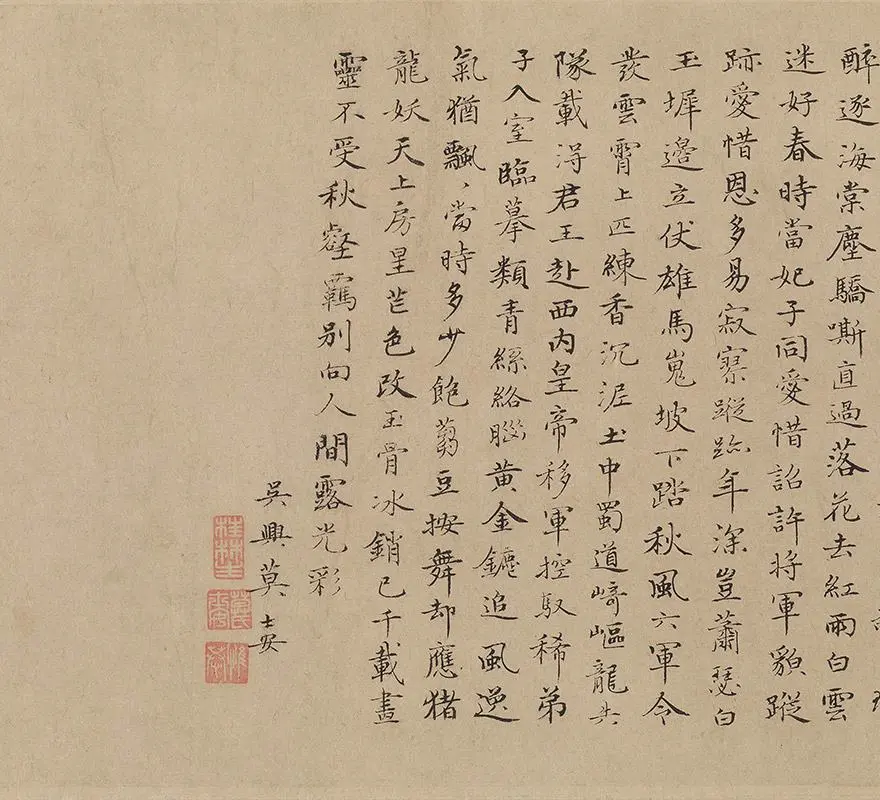 醉逐海棠塵驕嘶直過落花去紅雨白雲
迷好春時當妃子同愛惜詔許将軍貌蹤
跡愛惜恩多易寂寥蹤跡年深豈蕭瑟白
玉墀邊立伏雄馬嵬坡下踏秋風六軍令
發雲霄上匹練香沉泥土中蜀道崎嶇龍共
隊載得君王赴西内皇帝移軍控馭稀弟
子入室臨摹類青絲絡腦黄金鑣追風逸
氣猶飄、當時多少飽蒭豆按舞却應猪
龍妖天上房星芒色改玉骨冰銷已千載畫
靈不受秋壑羈別向人間露光彩
吳興莫士安